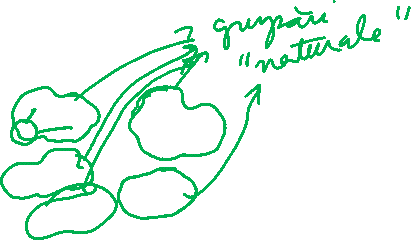 grupări
"naturale"